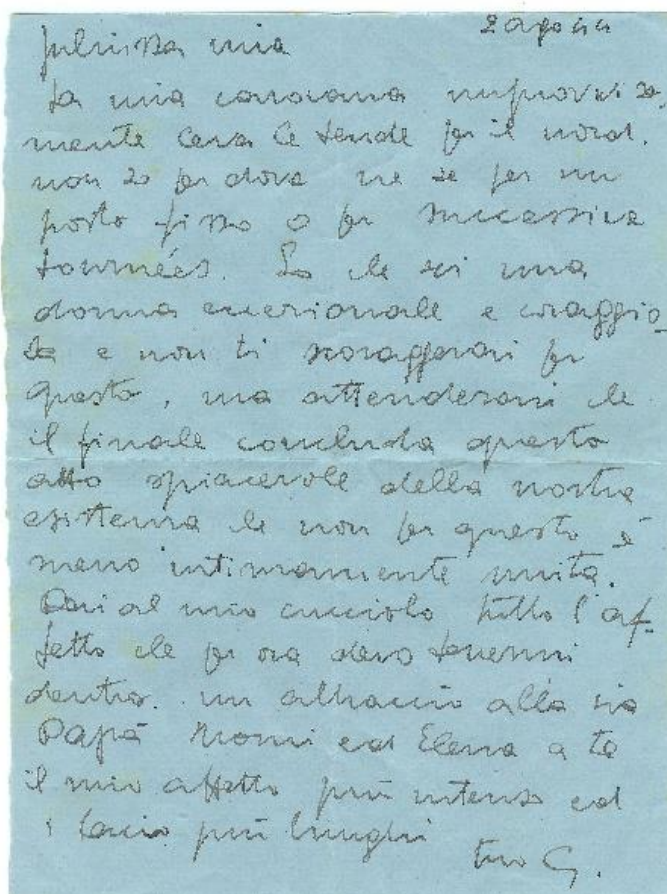 2 ago 44
Julinssa mia
la mia carovana improvvisa
mente leva le tende per il nord.
non so per dove ne se per un
posto fisso o per successive
tournées. So che sei una
donna eccezionale e coraggio-
sa e non ti scoraggerai per
questo, ma attenderai che
il finale concluda questo
atto spiacevole della nostra
esistenza che non per questo è
meno intimamente unita.
Dai al mio cucciolo tutto l'af-
fetto che per ora devo tenermi
dentro. un abbraccio alla zia
Papà Nonni ed Elena a te
il mio affetto più intenso ed
i baci più lunghi
tuo G.